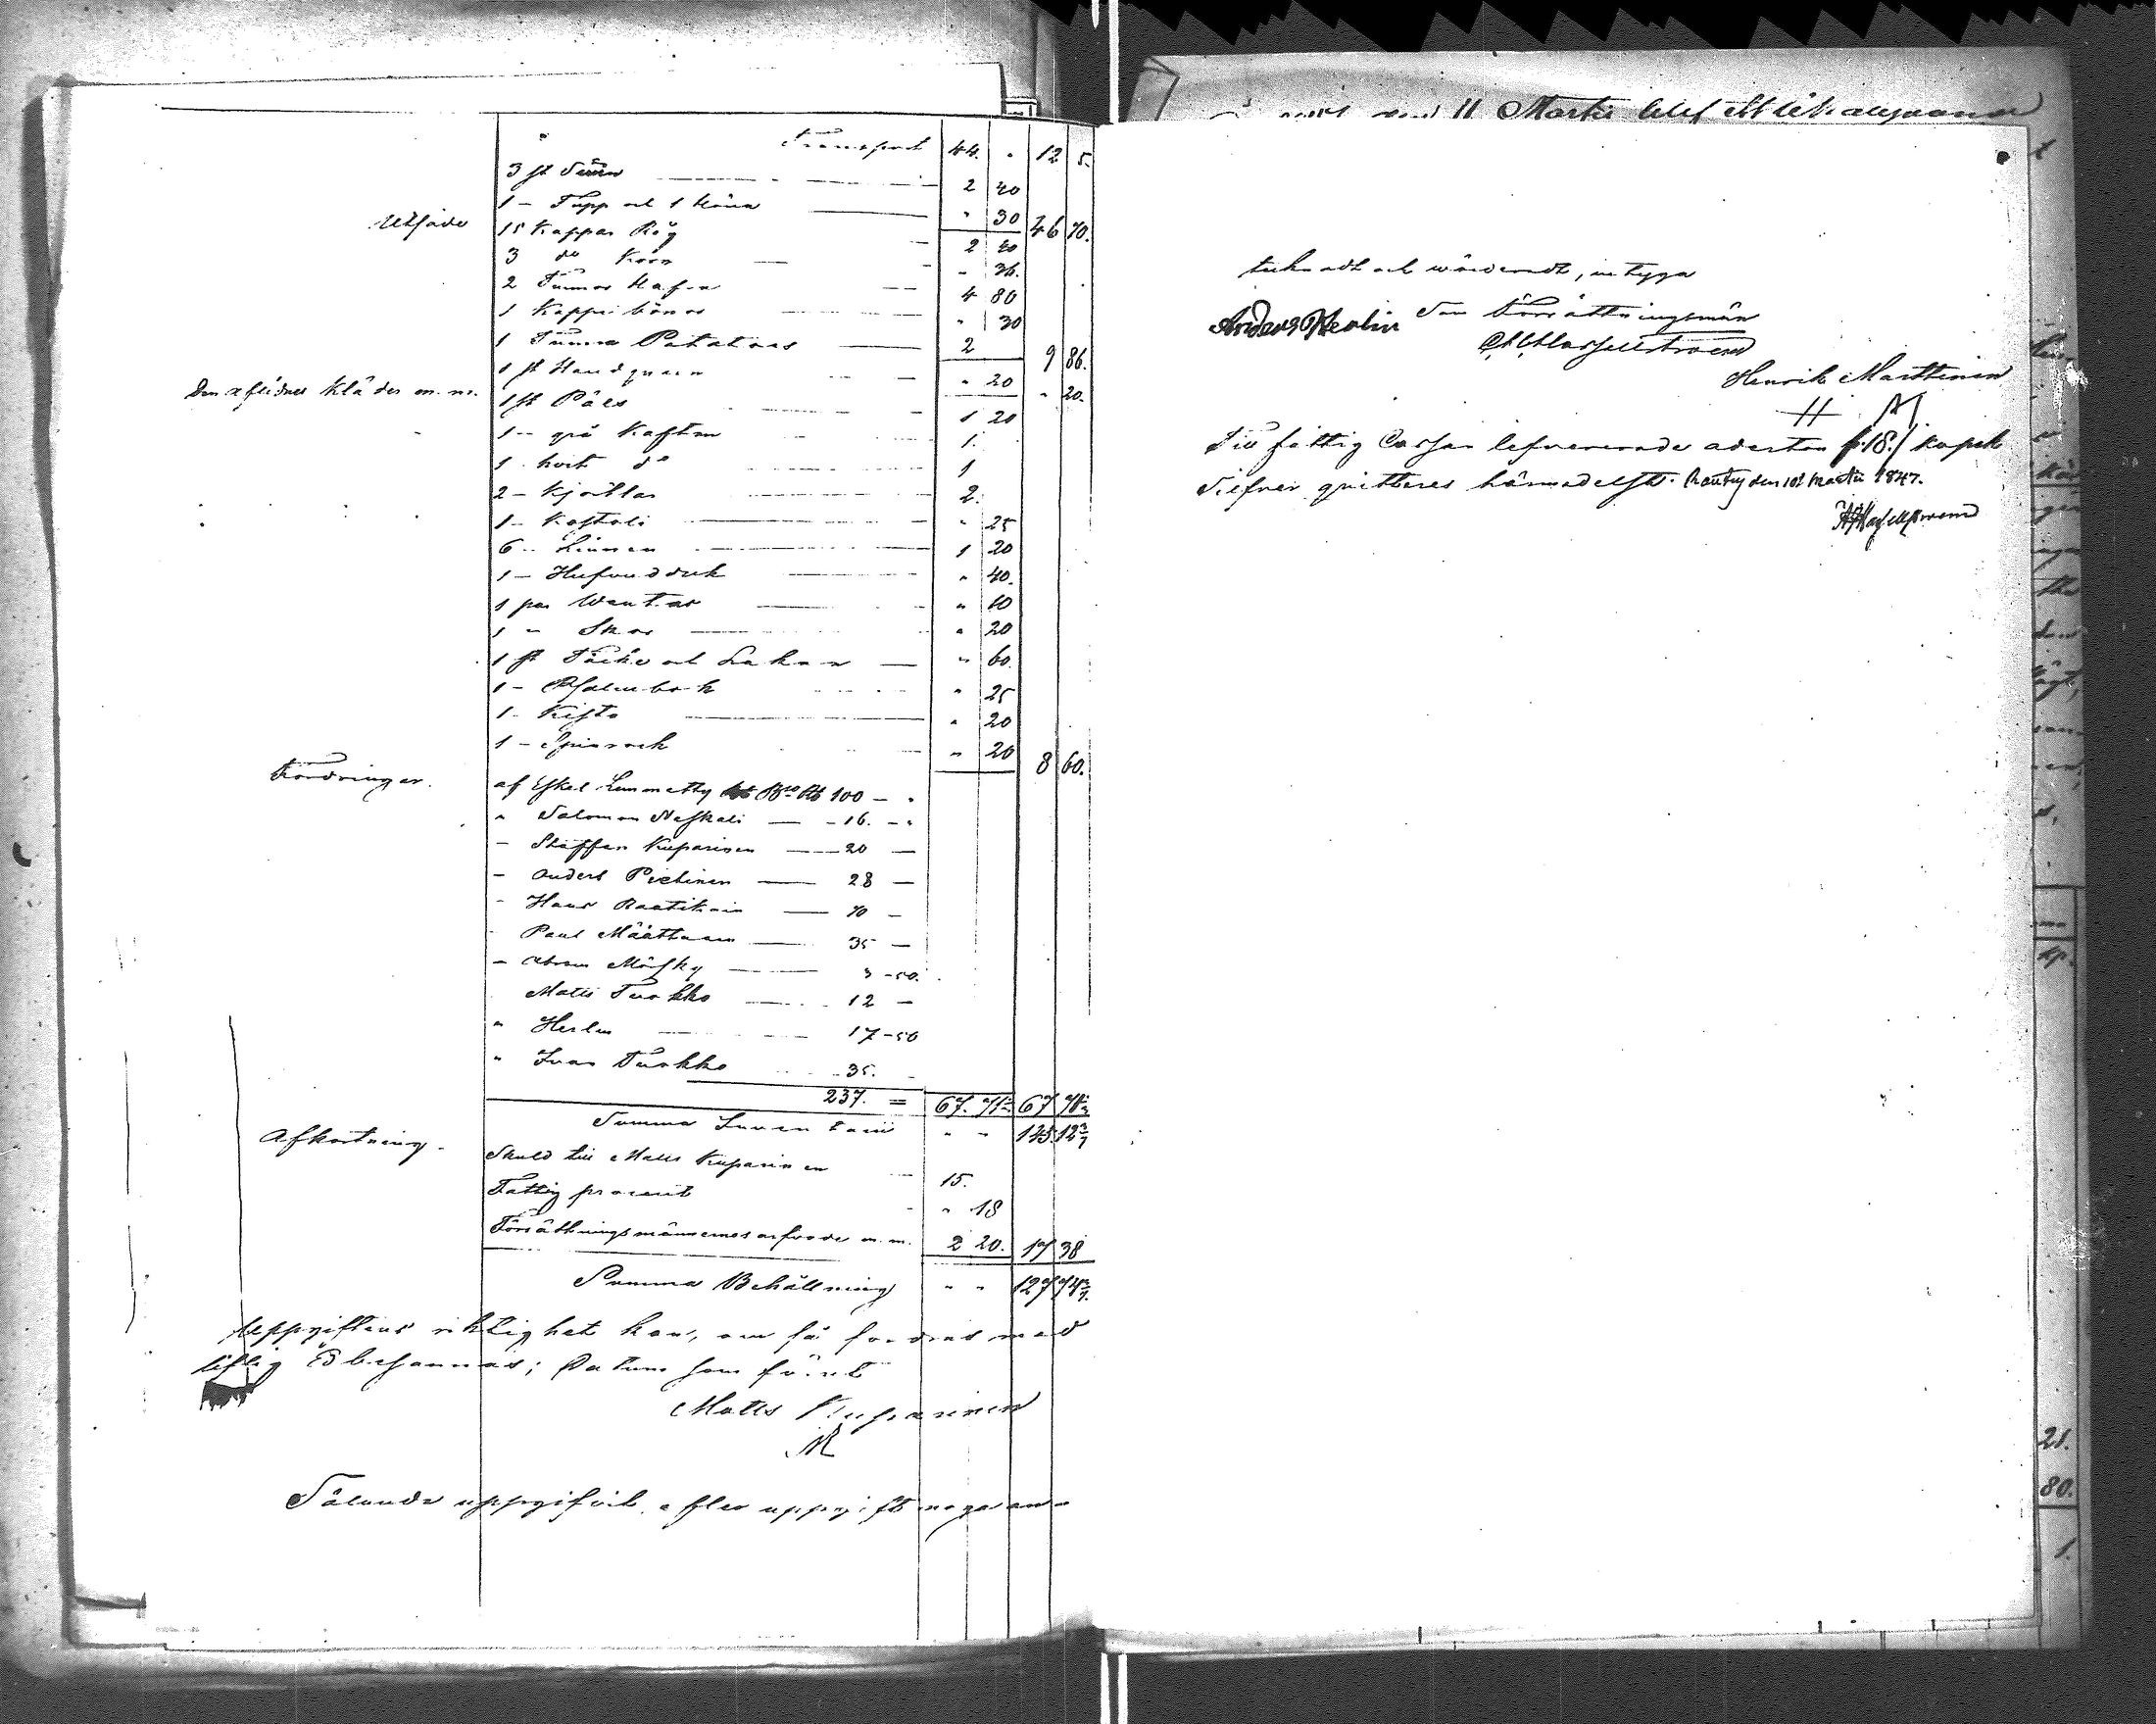 Transport 44. " 12 5.
3 st Svin 2 40
1 - Tupp och 1 Höna " 30 46 70.
Utsäde 15 Kappar Råg 2 40
3 do Korn " 36.
2 Tunnor Hafra 4 80
1 Kappe bönor " 30
1 Tunna Potatoes 2 9 86.
1 st Handqvarn " 20 " 20.
Den aflidnes Kläder m.m. 1 st Päls 1 20
1 - grå Kaftan 1.
1 - hvit do 1
2 - Kjortlar 2.
1 - Kostoli " 25
6 - Linnen 1 20
1 - Hufvudduk " 40.
1 par Wantar " 10
1 " Skor " 20
1 st Täcke och Lakan " 60
1 - Psalmbok " 25
1 - Kista " 20
1 - Spinrock " 20 8 60.
Fordringar. af Eskel Lemmetty Bco Rb 100 - "
" Salomon Naskali 16. - "
- Staffan Kuparinen 20
- Anders Pietinen 28
- Hans Raatikain 70
- Paul Määttänen 35
- Abram Mörsky 3-50.
Matts Turkko 12
" Herlin 17-50
" Ivar Turkko 35.
237. = 67. 71 3/7 67 71 3/7
Summa Inventarii " " 145 12 3/7
Afkortning. Skuld till Matts Kuparinen 15.
Fattig procent " 18
Förrättningsmännernes arfvode m.m. 2 20. 17 38
Summa Behållning " " 127 74 3/7.
Uppgiftens riktighet kan, om så fordras med
liflig Ed besannas; Datum som förut
Matts Kuparinen
MK
Sålunda uppgifvit, efter uppgift noga an-
11 Martii
teknadt och wärderadt, intyga
Anders Herlin Förrättningsmän
Henrik Marttinen
H M
Till fattig Cassan lefvererade aderton /:18:/ kopek
Silfver qvitteres härmedelst. Rautus den 10 Martii 1847.
21.
80.
1.